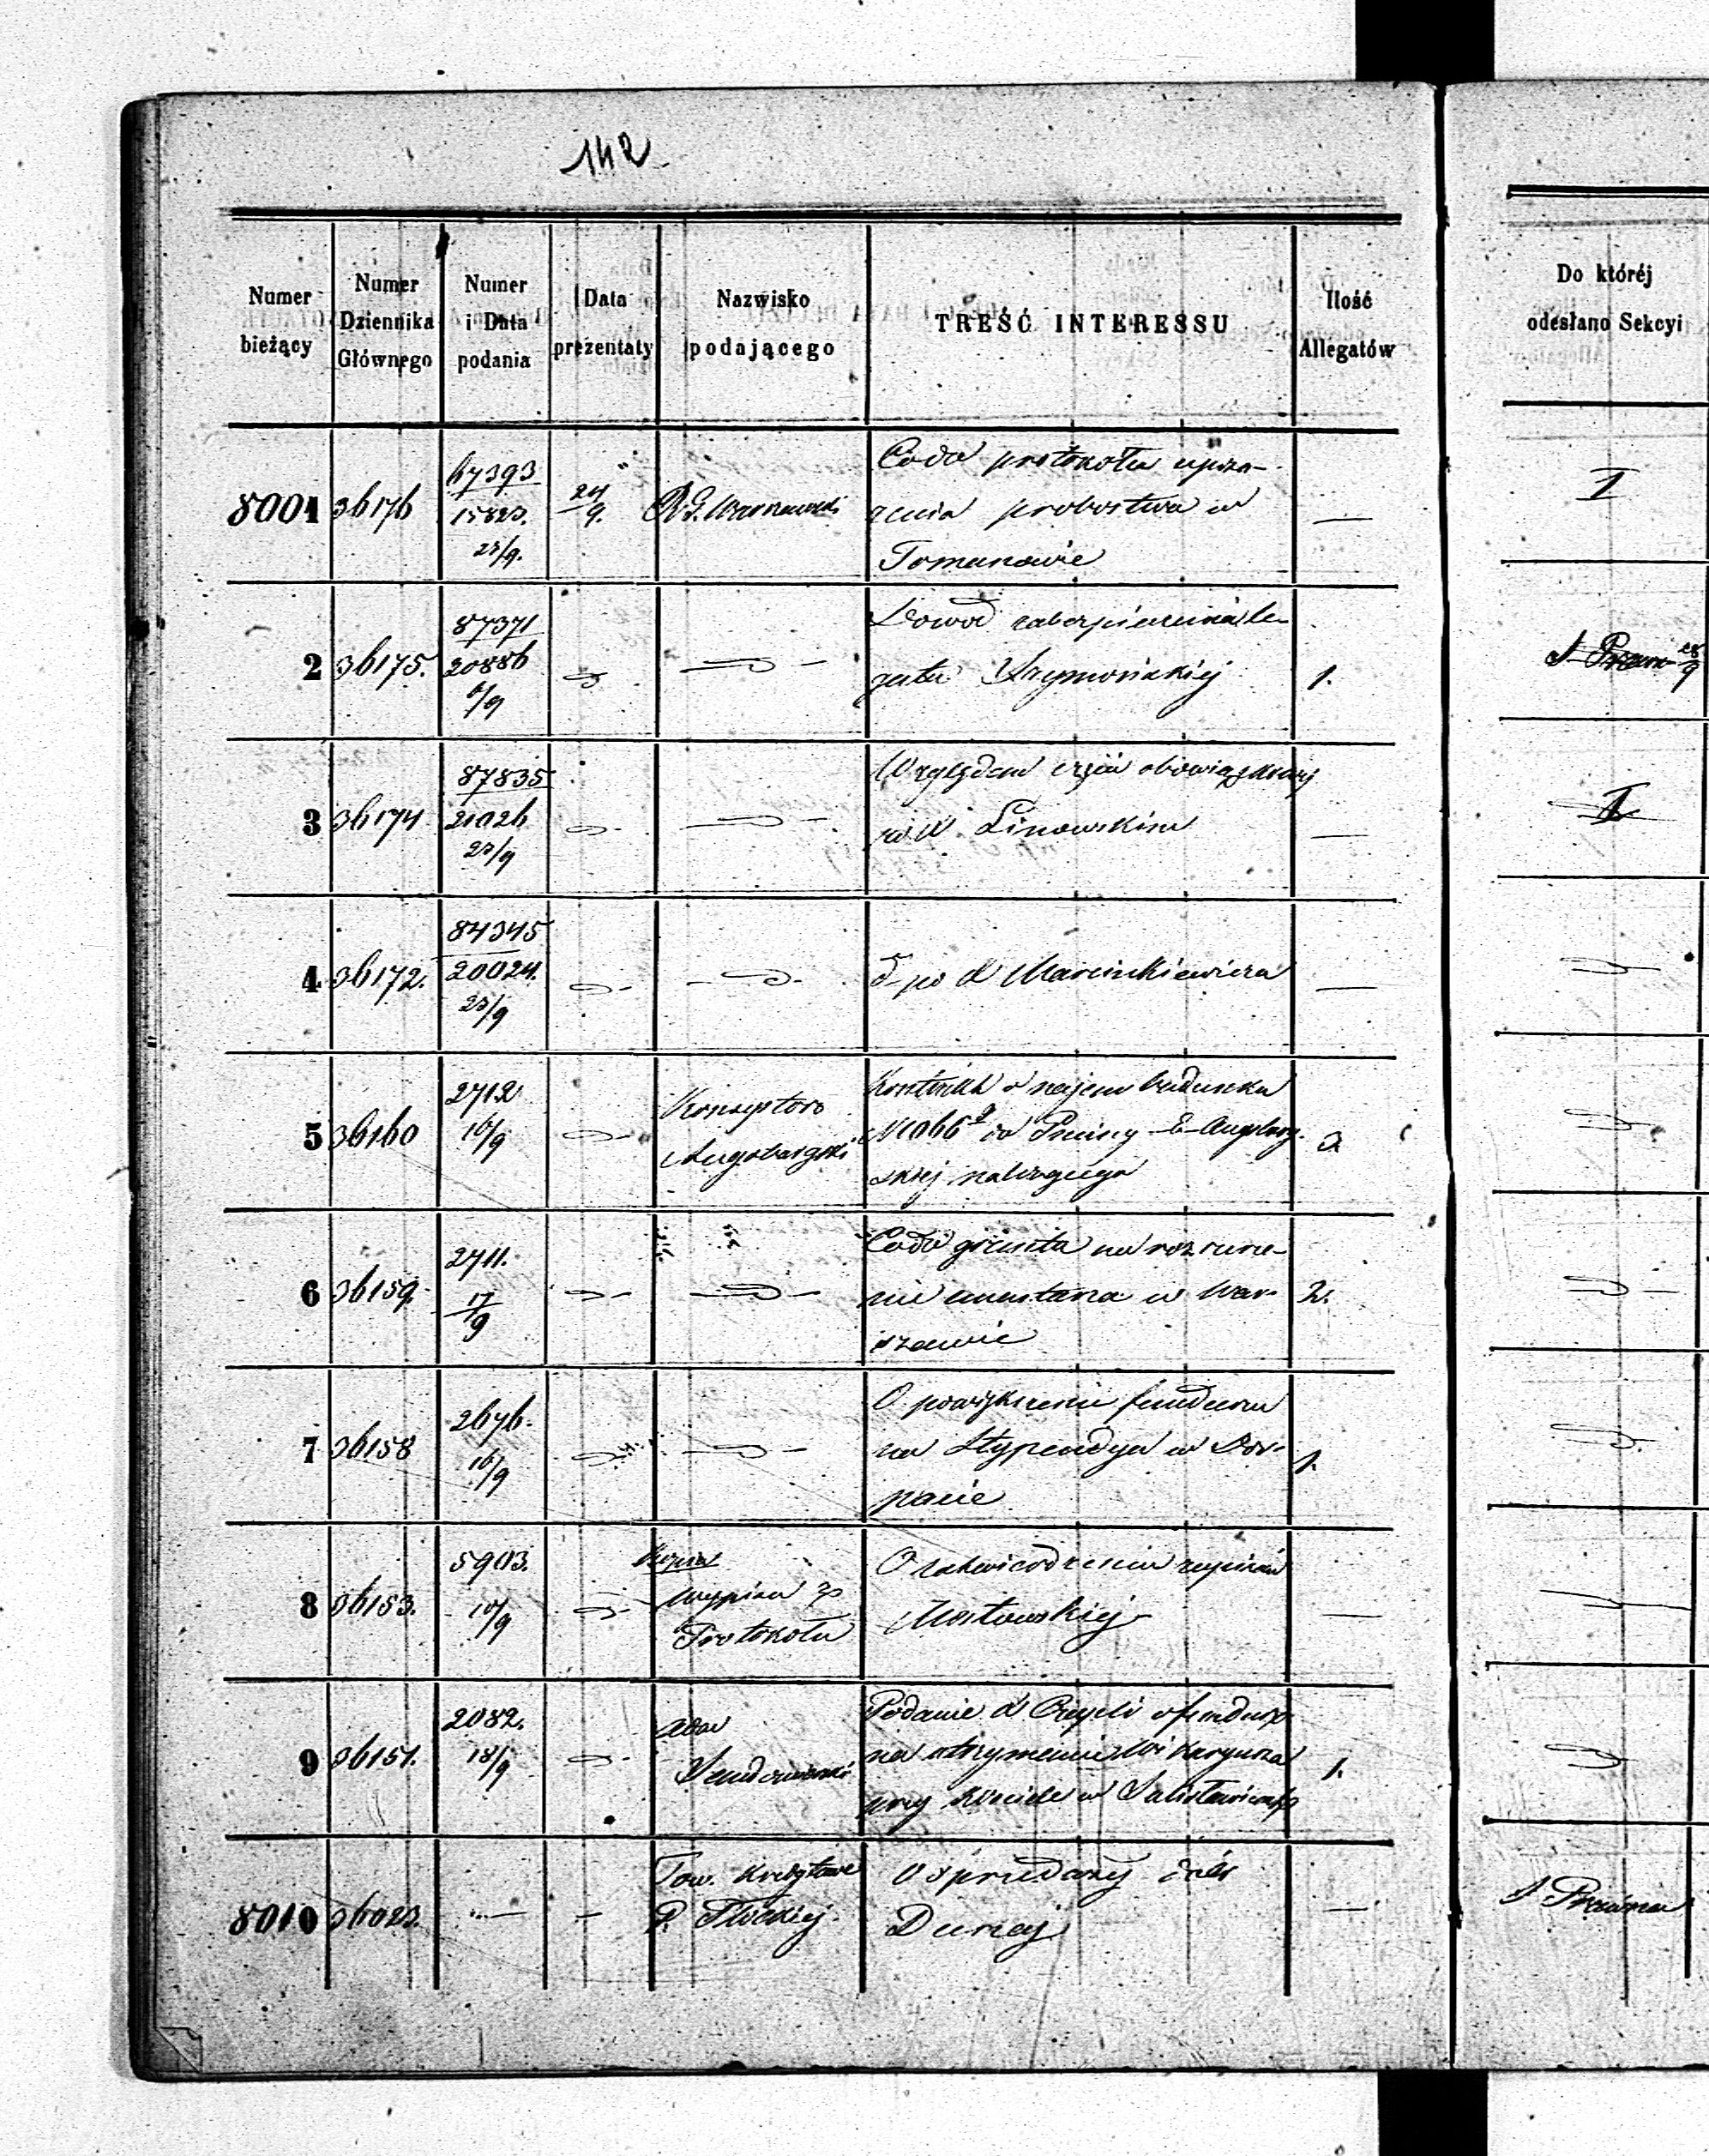 142
Numer bieżący
Numer Dziennika Głównego
Numer i Data podania
Data prezentaty
Nazwisko podającego
TREŚĆ INTERESSU
Ilość Allegatów
Do któréj odesłano Sekcyi
8001 36176 67393 / 15823. 23/9. 24/9. R. G. Warszawski
Co do protokołu
probostwa w
Tomanowie
— I
2 36175. 87371 / 20886 6/9
Dowod zabezpieczenia le-
gatu Szymońskiej
1. S Prawn 28/9
3 36174 87835 / 21026 23/9
Względem obowiązkowej
po X. Linowskim
— I
4 36172. 84345 / 20024. 23/9
d-o po X Marcinkiewicza
—
5 36160 2712 16/9
Konsystorz
Augsburgski
Kontrakt o najem budunku
N 1066 do Gminy E-Augsburg-
skiej należącego
2
6 36159. 2711. 17/9
Co do gruntu na rozszerze-
nie cmentarza w War-
szawie
2.
7 36158 2676. 16/9
O powiększenie funduszu
na Stypendya w Dor-
pacie
1.
8 36153. 5903. 10/9
Kopia
wypisu z
Protokołu
O zatwierdzenie zapisów
Mostowskiej
—
9 36151. 2082. 18/9
Adw
Sandomierski
Podanie X o fundusz
na utrzymanie Wikaryusza
przy Kościele w
1.
8010 36023. — —
Tow. Kredytowe
G. Płockiej
O sprzedaży dóbr
Dunaj
— S Prawna